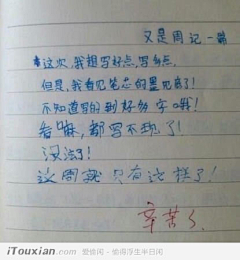 又是周记一篇
这次,我想写好点,写多点.
但是,我看见笔芯的墨见底了!
不知道写的到好多字哦!
看嘛,都写不现了!
没法了!
这周就只有这样了!
辛苦了.
iTouxian.com 爱偷闲-偷得浮生半日闲